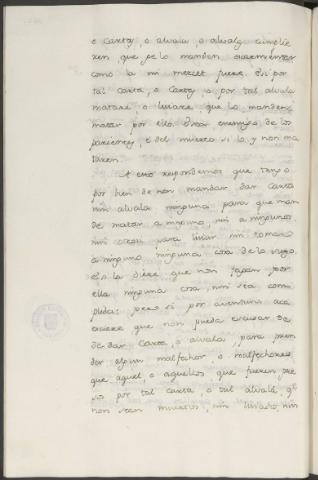 o carta, o alvala, o alvala cumplie
ren que se lo manden escarmentar
como la mi mercet fuere. E si por
tal carta, o Carta o por tal alvala
matare, o lisiare, que lo manden
matar por ello. Esto enemigo de los
parientes, e del muerto si lo y non ma
taren.
A esto respondemos que tengo
por bien de non mandar dar carta
nin alvala ninguna para que man
de matar a ninguno, nin a ningunos
nin otrosi para lisiar nin tomar
a ninguno ninguna cosa de lo suyo,
e si la diere que non fagan por
ella ninguna cosa, nin sea com
plida: pero si por aventura aca
eciere que non pueda escusar de
de dar Carta, o alvala, para pren
der algun malfechor, o malfechores,
que aquel, o aquellos, que fueren pre
sos por tal carta, o tal alvalá, q.e
non sean muertos, nin lisiados, nin